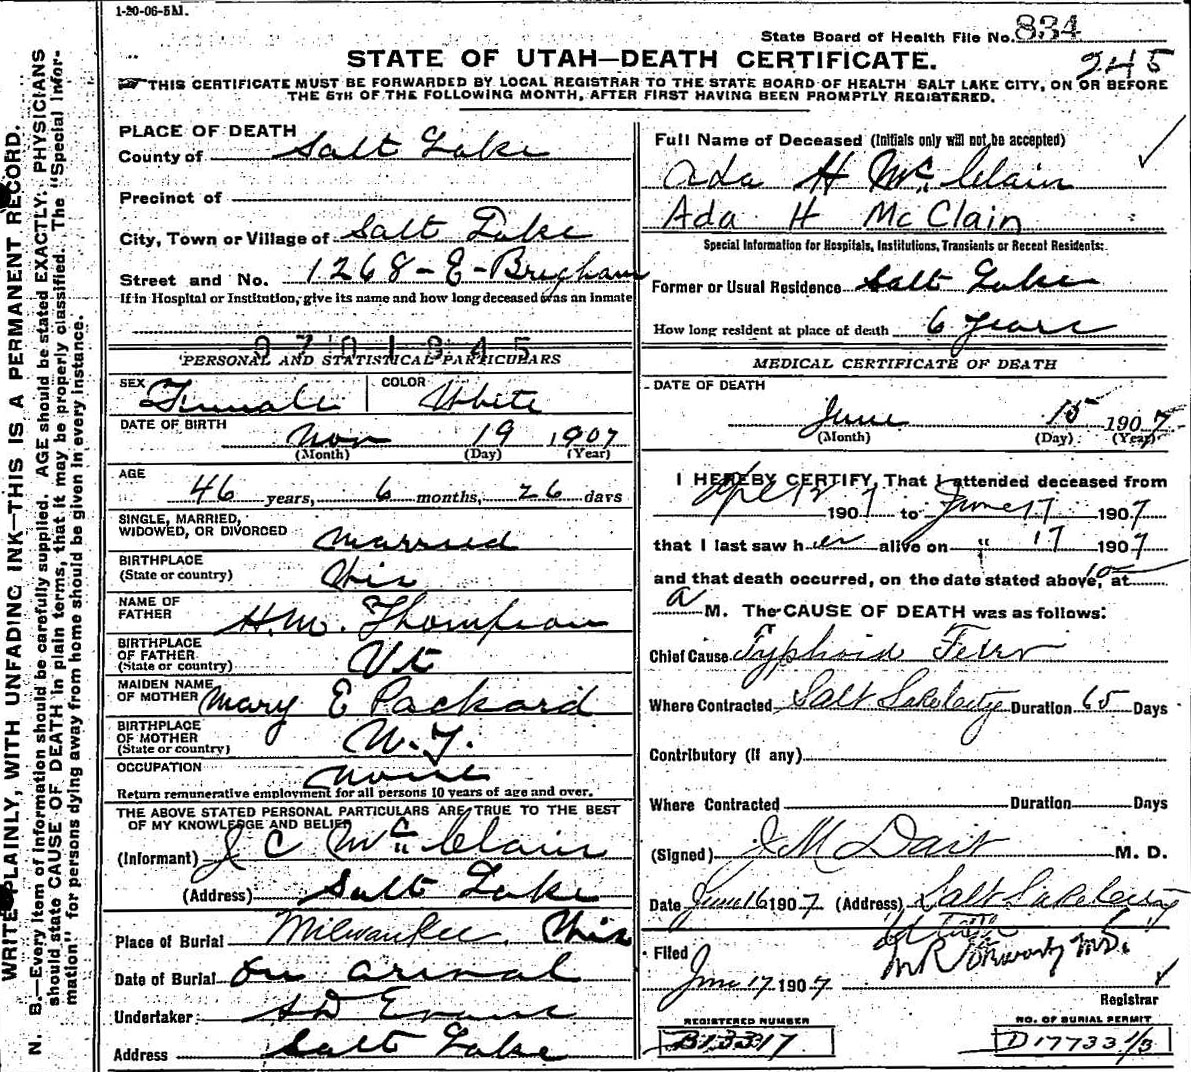 1-20-06-5M.
State Board of Health File No. 834
245
STATE OF UTAH—DEATH CERTIFICATE.
THIS CERTIFICATE MUST BE FORWARDED BY LOCAL REGISTRAR TO THE STATE BOARD OF HEALTH SALT LAKE CITY, ON OR BEFORE
THE 5TH OF THE FOLLOWING MONTH, AFTER FIRST HAVING BEEN PROMPTLY REGISTERED.
WRITE PLAINLY, WITH UNFADING INK—THIS IS A PERMANENT RECORD.
N. B.—Every item of information should be carefully supplied. AGE should be stated EXACTLY. PHYSICIANS
should state CAUSE OF DEATH in plain terms, that it may be properly classified. The "Special Infor-
mation" for persons dying away from home should be given in every instance.
PLACE OF DEATH
County of Salt Lake
Precinct of
City, Town or Village of Salt Lake
Street and No. 1268-E-Brigham
If in Hospital or Institution, give its name and how long deceased was an inmate
9701845
PERSONAL AND STATISTICAL PARTICULARS
SEX Female COLOR White
DATE OF BIRTH Nov 19 1907
(Month) (Day) (Year)
AGE
46 years, 6 months, 26 days
SINGLE, MARRIED,
WIDOWED, OR DIVORCED Married
BIRTHPLACE
(State or country) Wis
NAME OF
FATHER H.M. Thompson
BIRTHPLACE
OF FATHER
(State or country) Vt
MAIDEN NAME
OF MOTHER Mary E Packard
BIRTHPLACE
OF MOTHER
(State or country) N.Y.
OCCUPATION None
Return remunerative employment for all persons 10 years of age and over.
THE ABOVE STATED PERSONAL PARTICULARS ARE TRUE TO THE BEST
OF MY KNOWLEDGE AND BELIEF
(Informant) J C McClain
(Address) Salt Lake
Place of Burial Milwaukee. Wis
Date of Burial On arival
Undertaker S D Evans
Address Salt Lake
Full Name of Deceased (Initials only will not be accepted)
Ada H McClain
Ada H McClain
Special Information for Hospitals, Institutions, Transients or Recent Residents:
Former or Usual Residence Salt Lake
How long resident at place of death 6 years
MEDICAL CERTIFICATE OF DEATH
DATE OF DEATH
June 15 1907
(Month) (Day) (Year)
I HEREBY CERTIFY, That I attended deceased from
Apl 12 1907 to June 17 1907
that I last saw her alive on " 17 1907
and that death occurred, on the date stated above, at 10
a M. The CAUSE OF DEATH was as follows:
Chief Cause Typhoid Fever
Where Contracted Salt Lake City Duration 65 Days
Contributory (if any)
Where Contracted Duration Days
(Signed) J M Dart M. D.
Date June 16 1907 (Address) Salt Lake City
Utah
Filed
June 17 1907 M.D.
Registrar
REGISTERED NUMBER
B13317
NO. OF BURIAL PERMIT
D17733 1/3